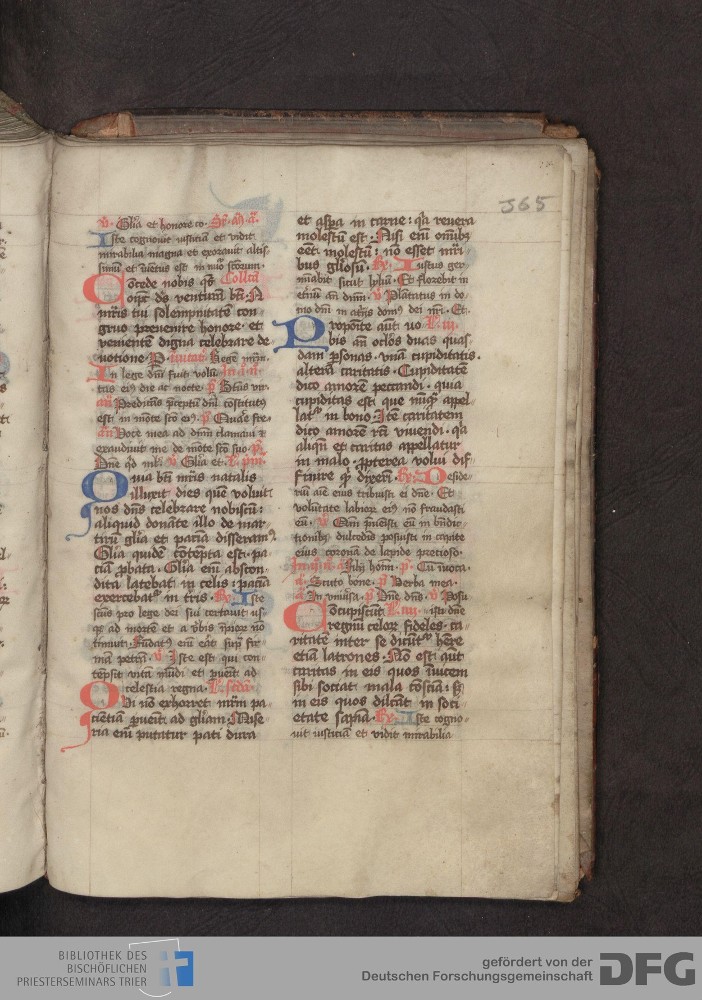 365
v. Glia et honore co. Sr. M. a.
Iste cognovit iusticia et vidit
mirabilia magna et exoravit altis-
simu et iuctus est in nuo scorum.
Cocede nobis qs Collca
oipt ds ventura bti N
mris tui solempnitate con-
gruo prevenire honore et
veniente digna celebrare de-
votione P. Rege mrm.
In lege dni fuit volu. In .i. n.
tas eius die ac nocte p Btus vir
an Predicas pceptu dni costitutus
est in mote sco ei. p Quare fre.
an Voce mea ad dnm clamavi et
exaudivit me de mote sco suo. ps
Dne qd ml. v Glia et l. pm.
Quia bti mris natalis
illuxit dies que voluit
nos dns celebrare nobiscu:
aliquid donate illo de mar-
tiru glia et pacia disseram.
Glia quide cotepta est. pa
cia pbata. Glia eni abscon-
dita latebat in celis: pacia
exercebat in tris. Rx. Iste
scus pro lege dei sui certavit us-
qz ad morte et a vbis ipior no
timuit. Fudat eni eat sup fir
ma petra. v Iste est qui con-
tepsit vita mudi et pueit ad
celestia regna. l. scda.
Ubi no exhorret mrm pa
ciencia pveit ad gliam. Mise-
ria eni putatur pati dura
et aspa in carne: qa revera
molestu est. Nisi eni omibz
eet molestu: no esset mri-
bus gliosu. Rx. Iustus ger
miabit sicut lyliu. Et florebit in
etnu an dnm. v Platatus in do-
mo dni in atriis domus dei nri. Et.
Propoite aut vo l. iii.
bis an oclos duas quas-
dam psonas. una cupiditatis.
altera caritatis. Cupiditate
dico amore peccandi. quia
cupiditas est que nuqz appel-
lat in bono. Ite caritatem
dico amore rci vivendi. qa
aliqn et caritas appellatur
in malo. propterea volui dif-
finire q dixeri. Rx. Deside-
riu aie eius tribuisti ei dne. Et
volutate labior eius no fraudasti
eu. v Qm pvenisti eu in bndic-
tionibz dulcedis posuisti in capite
eius corona de lapide precioso.
In .ii. n. a Filii homi. p. Cu invoca.
a. Scuto bone. p Verba mea.
a In univsa. p Dne dns. v Posu
Cocupiscut l. iiii. isti dne
regnu celor fideles. ca-
ritate inter se dicut here
etia latrones. No est aut
caritas in eis quos invicem
sibi sociat mala coscia: s
in eis quos dilcat in soci
etate sapia. Rx. Iste cogno-
vit iusticia et vidit mirabilia
BIBLIOTHEK DES
BISCHÖFLICHEN
PRIESTERSEMINARS TRIER
gefördert von der
Deutschen Forschungsgemeinschaft
DFG